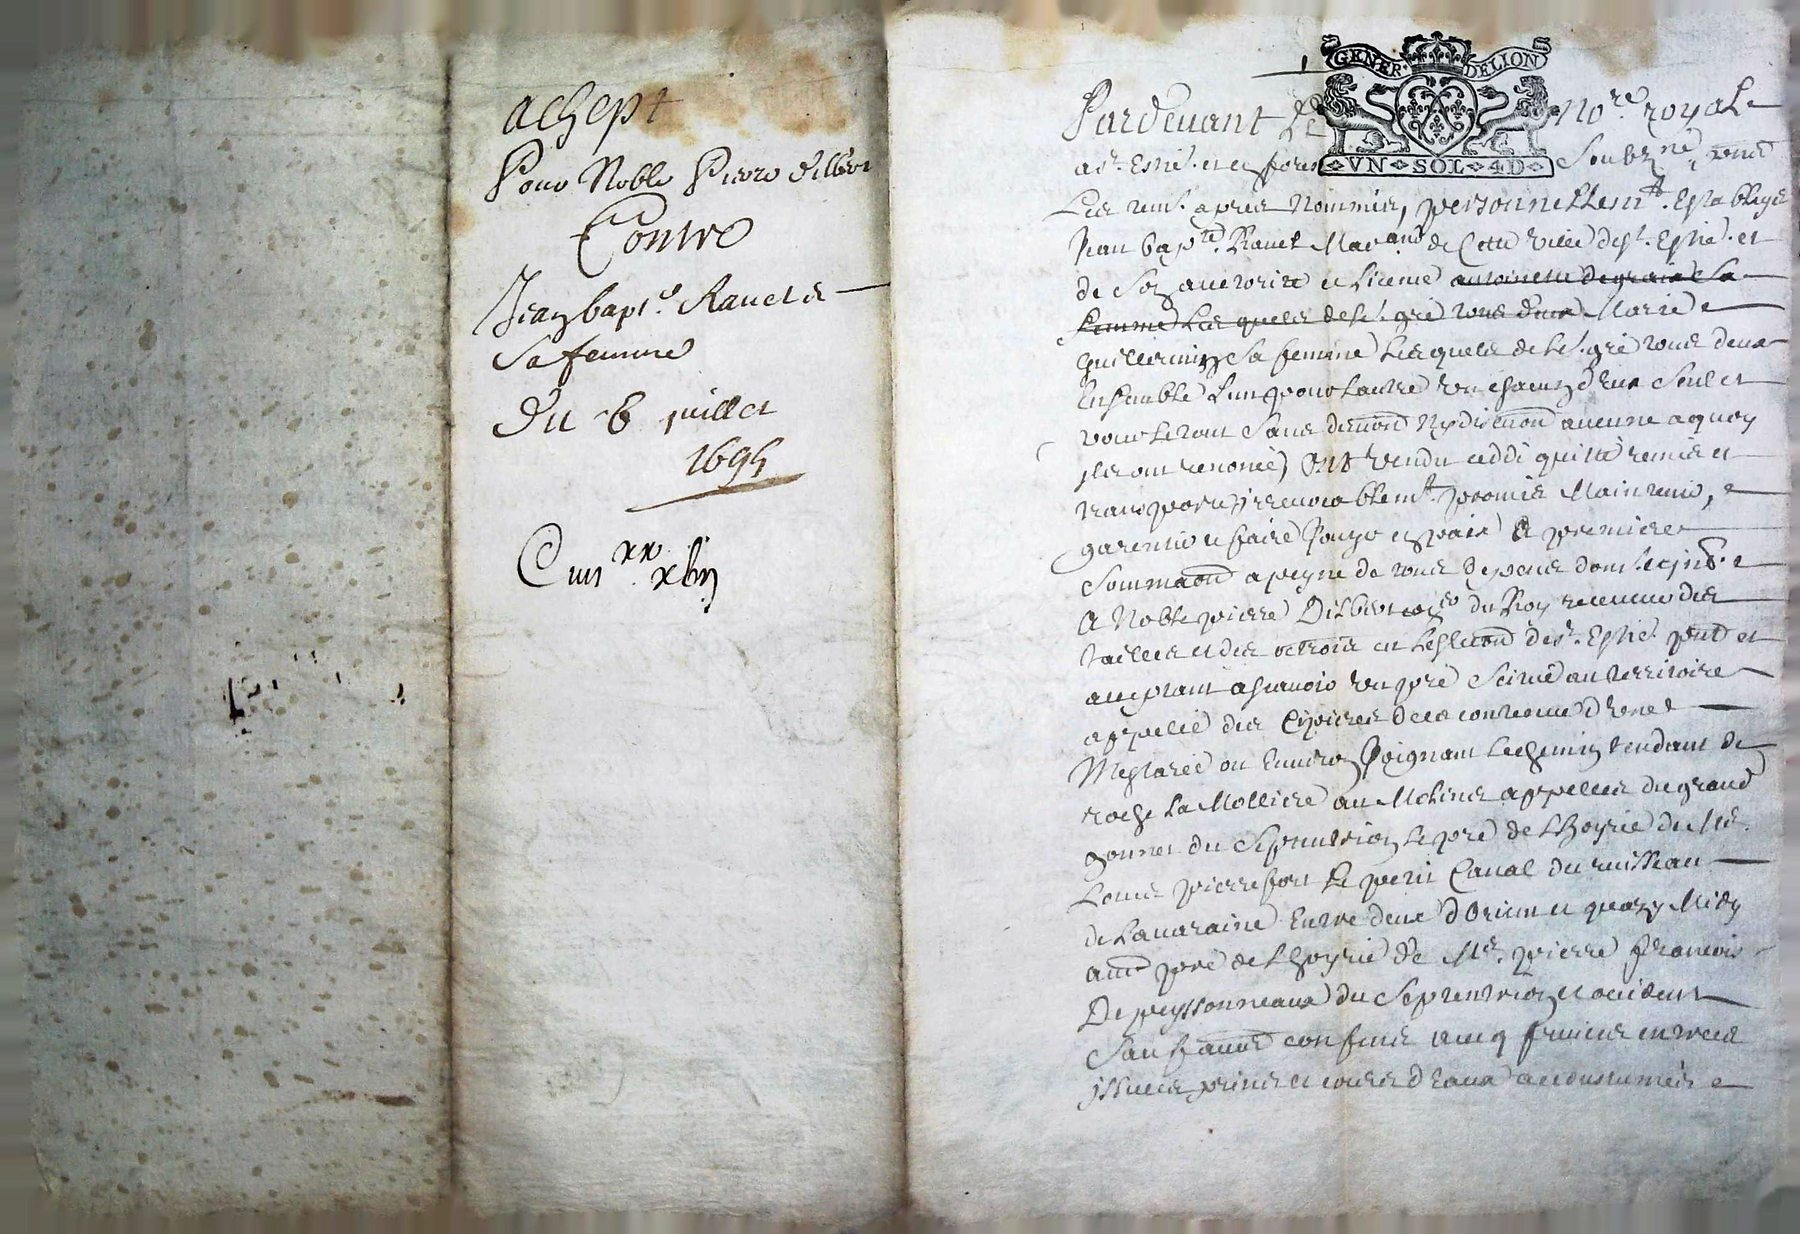 achept
Pour Noble Pierre Dilbert
Contre
Jean bapt.e Ravel &
Sa femme
Du 6 juillet
1695
C iiii xx xbiij
GENER. DELION
VN SOL 4D
Pardevant Le no.re royal
a st. Estie. et en forest Soubz.né
Les tem. apres Nommés, personnellem.t Establys
Jean bap.te Ravel Mar.and de Cette ville de st. Estie. et
de son authorité et licence antoinette degraix sa
femme Lesquels de le. gré tous deux Marie
Guillermin sa femme Lesquels de le. gré tous deux
Ensemble L'un pour L'autre un chacun d'eux seul et
pour Le tout sans ny aucune a quoy
ils ont renoncé, ont vendu ceddé quitté remis et
transporté irrevocablem.t promis Maintenir,
garentir et faire Jouyr en paix a premiere
Sommaon a peyne de tous depens dom.
A Noble pierre Dilbert du Roy receveur des
tailles et des octrois en Leslection de st. Estie. pnt et
aceptant ascavoir un pré Scitué au territoire
appellé des de la contenue d'une
Mestarée ou Environ Joignant Le chemin tendant de
roche La Molliere au Molins appellés du grand
gonnet du Septentrion Le pré de L'hoyrie du Me.
Louis pierrefort Le petit Canal du ruisseau
de Lavaraine Entre deux d'Orient et quazy Midy
autre pré de L'hoyrie de Me. pierre francois
De peyssonneaux du Septentrion et occident
Sauf autres confins avecq ses entrées
issues prises et cours d'Eaux accoustumés